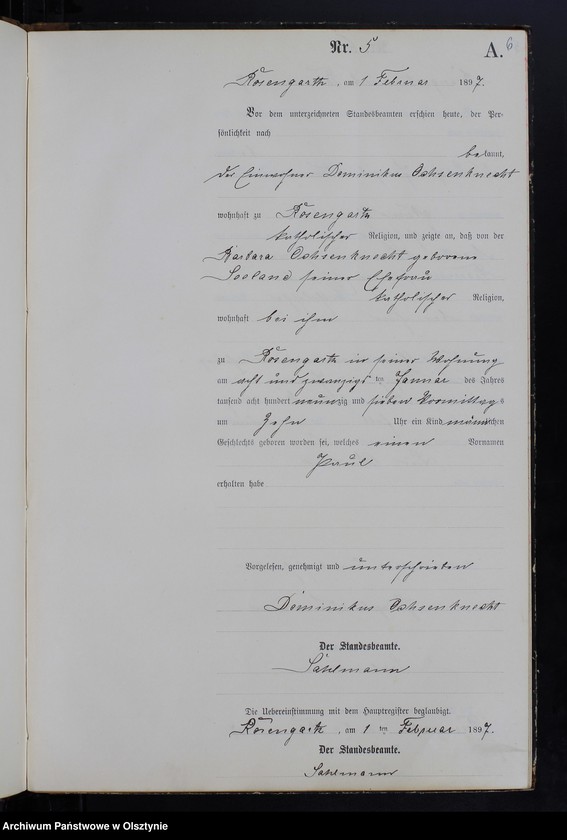 Nr. 5
A. 6
Rosengarth, am 1 Februar 1897.
Vor dem unterzeichneten Standesbeamten erschien heute, der Per-
sönlichkeit nach
bekannt,
der Einwohner Dominikus Ochsenknecht
wohnhaft zu Rosengarth
katholischer Religion, und zeigte an, daß von der
Barbara Ochsenknecht geborene
Seeland seiner Ehefrau
katholischer Religion,
wohnhaft bei ihm
zu Rosengarth in seiner Wohnung
am acht und zwanzigs ten Januar des Jahres
tausend acht hundert neunzig und sieben Vormittags
um Zehn Uhr ein Kind männlichen
Geschlechts geboren worden sei, welches einen Vornamen
Paul
erhalten habe
Vorgelesen, genehmigt und unterschrieben
Dominikus Ochsenknecht
Der Standesbeamte.
Sahlmann
Die Uebereinstimmung mit dem Hauptregister beglaubigt.
Rosengarth, am 1 ten Februar 1897.
Der Standesbeamte.
Sahlmann
Archiwum Państwowe w Olsztynie